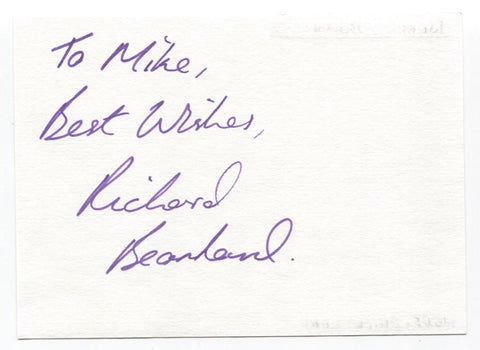 To Mike,
Best Wishes,
Richard
Beanland.